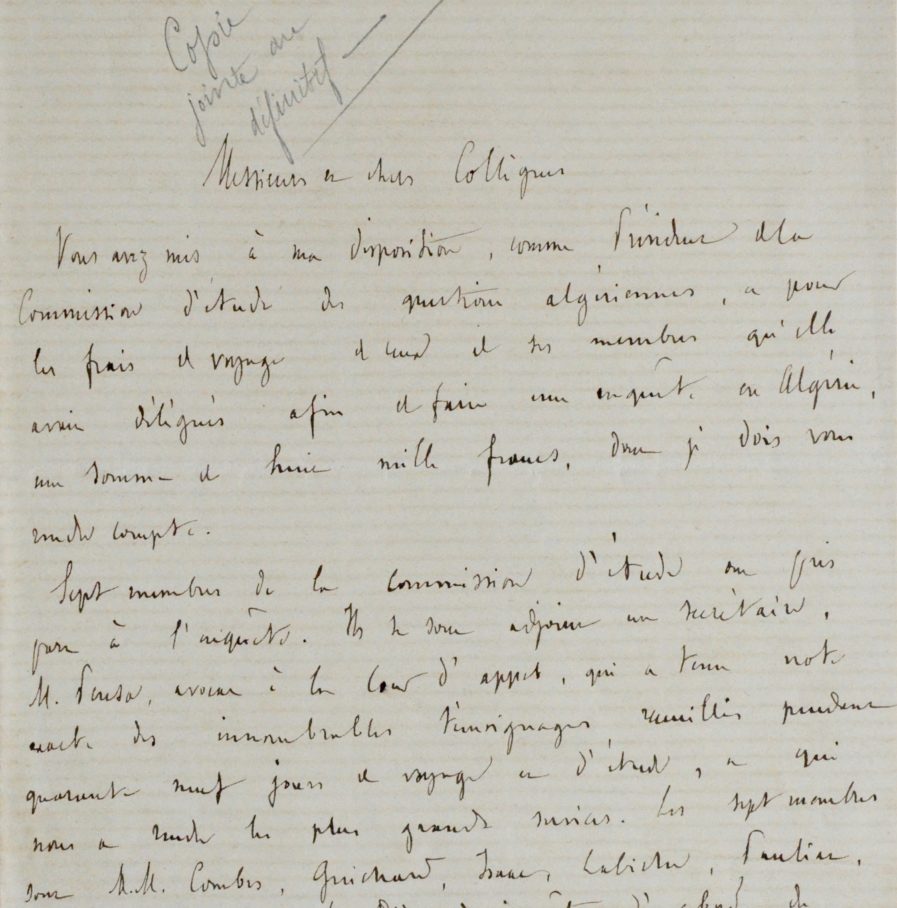 Copie
jointe au
définitif
Messieurs et chers Collègues
Vous avez mis à ma disposition, comme Président de la
Commission d'étude des questions algériennes, et pour
les frais de voyage de ceux de ses membres qu'elle
avait délégués afin de faire une enquête en Algérie,
une somme de huit mille francs, dont je dois vous
rendre compte.
Sept membres de la commission d'étude ont pris
part à l'enquête. Ils se sont adjoint un secrétaire,
M. Pensa, avocat à la Cour d'appel, qui a tenu note
exacte des innombrables témoignages recueillis pendant
quarante neuf jours de voyage et d'étude, et qui
nous a rendu les plus grands services. Les sept membres
sont M.M. Combes, Guichard, Isaac, Labiche, Pauliat,